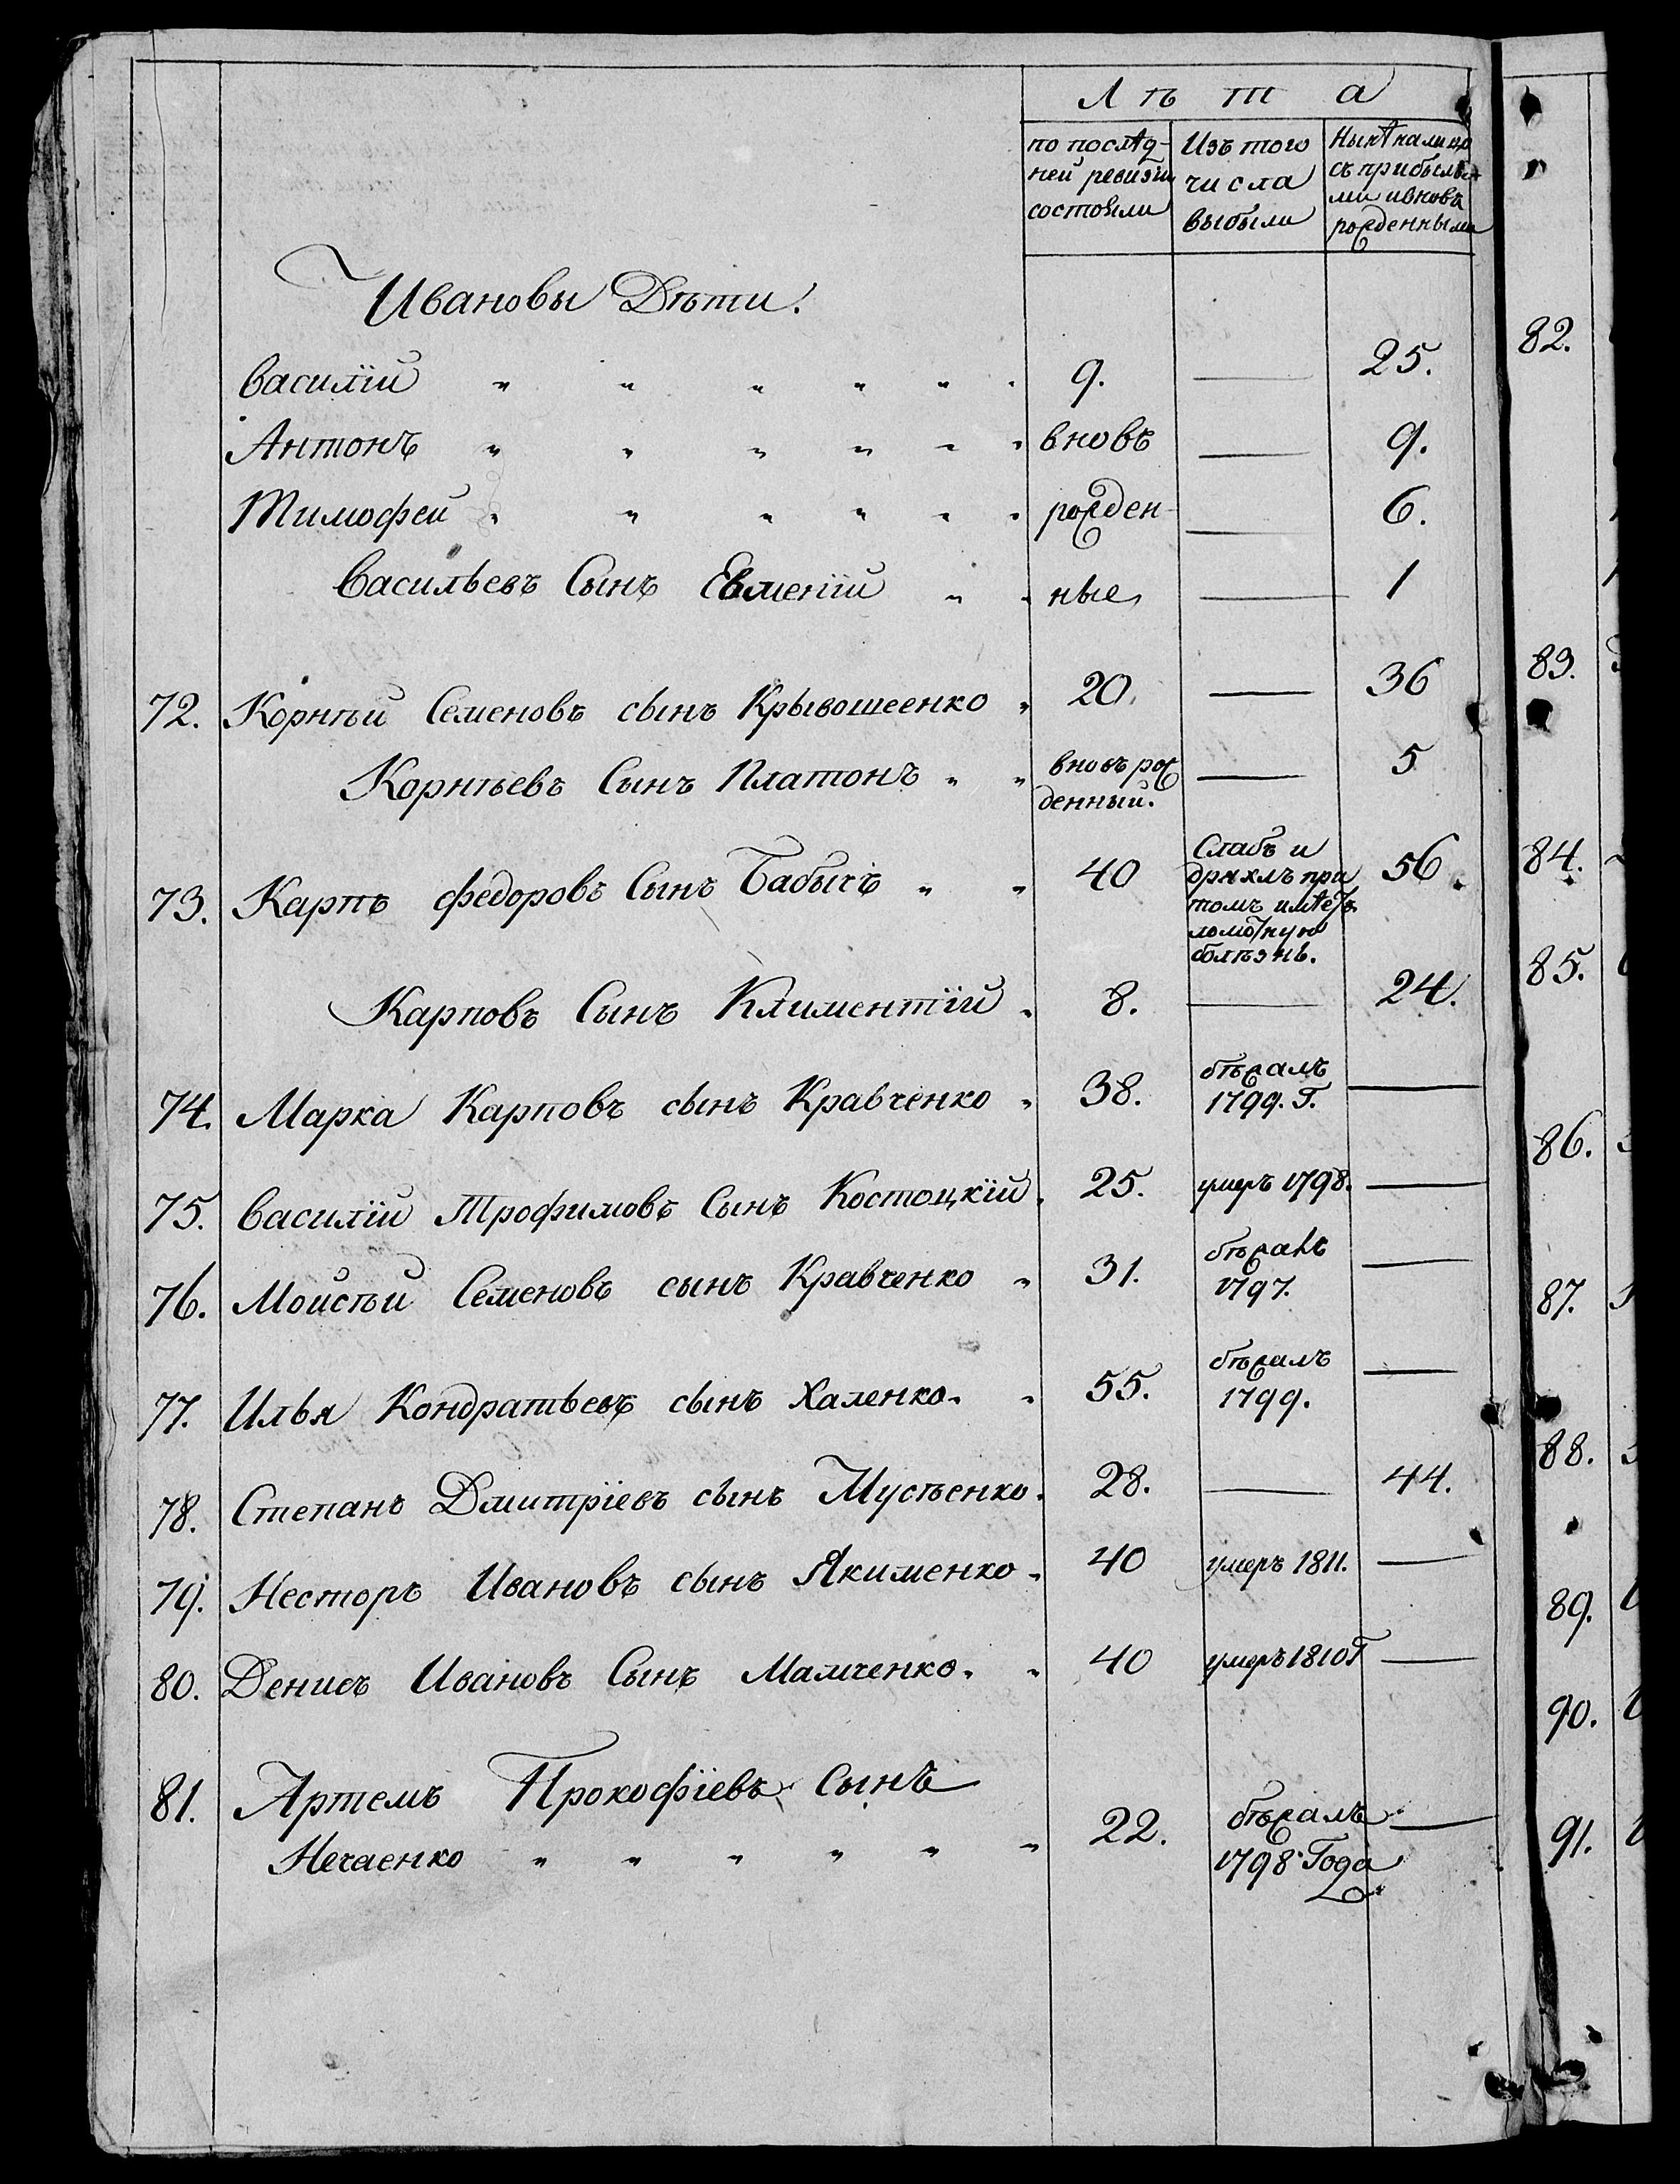 Лѣта
по послѣд-
ней ревизіи
состояли
Изъ того
числа
выбыли
Нынѣ налицо
съ прибылы-
ми и вновь
рожденными
Ивановы Дѣти.
Василій " " " " " " 9. — 25.
Антонъ " " " " " " вновь — 9.
Тимофей " " " " " " рожден- — 6.
Васильевъ Сынъ Евменій " " ные — 1
72. Корнѣй Семеновъ сынъ Крывошеенко " 20. — 36
Корнѣевъ Сынъ Платонъ " " вновь рож — 5
денный.
73. Карпъ Федоровъ Сынъ Бабычъ " " 40 Слабъ и 56.
дряхлъ при
томъ имѣетъ
ломотную
болѣзнь.
Карповъ Сынъ Климентій " 8. — 24.
74. Марка Карповъ сынъ Кравченко " 38. бѣжалъ —
1799. Г.
75. Василій Трофимовъ Сынъ Костоцкій " 25. умеръ 1798. —
76. Моисѣй Семеновъ сынъ Кравченко " 31. бѣжалъ —
1797.
77. Илья Кондратьевъ сынъ Халенко " " 55. бѣжалъ —
1799.
78. Степанъ Дмитріевъ сынъ Мусѣенко. 28. — 44.
79. Несторъ Ивановъ сынъ Якименко " 40 умеръ 1811. —
80. Денисъ Ивановъ Сынъ Мамченко " " 40 умеръ 1810 Г —
81. Артемъ Прокофіевъ Сынъ
Нечаенко " " " " " " 22. бѣжалъ —
1798 Года
82.
83.
84.
85.
86.
87.
88.
89.
90.
91.